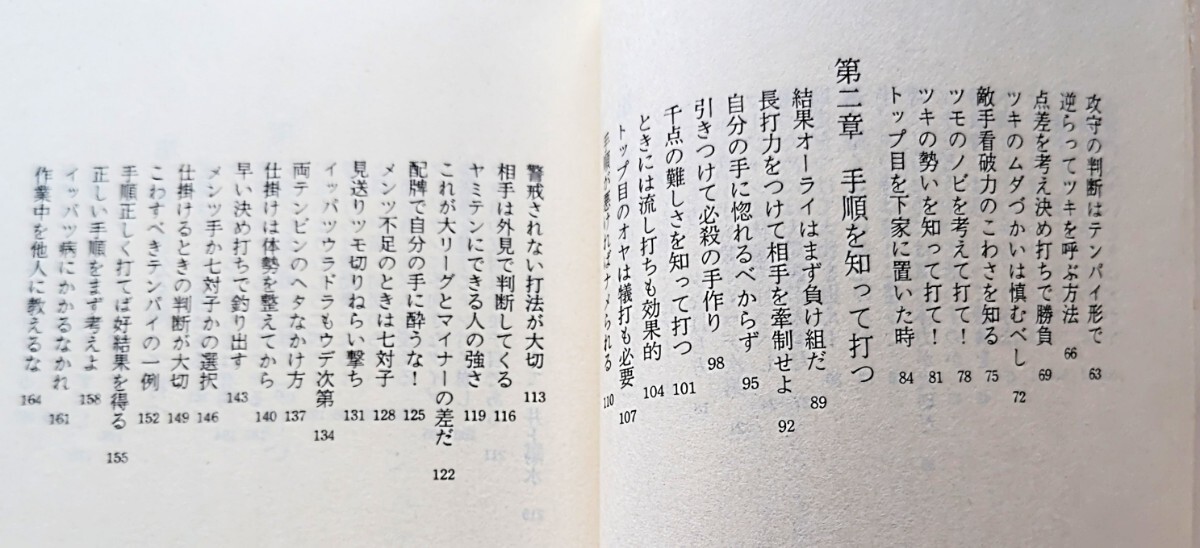 攻守の判断はテンパイ形で 63
逆らってツキを呼ぶ方法 66
点差を考え決め打ちで勝負 69
ツキのムダづかいは慎むべし 72
敵手看破力のこわさを知る 75
ツモのノビを考えて打て! 78
ツキの勢いを知って打て! 81
トップ目を下家に置いた時 84
第二章 手順を知って打つ
結果オーライはまず負け組だ 89
長打力をつけて相手を牽制せよ 92
自分の手に惚れるべからず 95
引きつけて必殺の手作り 98
千点の難しさを知って打つ 101
ときには流し打ちも効果的 104
トップ目のオヤは犠打も必要 107
手順が悪ければナメられる 110
警戒されない打法が大切 113
相手は外見で判断してくる 116
ヤミテンにできる人の強さ 119
これが大リーグとマイナーの差だ 122
配牌で自分の手に酔うな! 125
メンツ不足のときは七対子 128
見送りツモ切りねらい撃ち 131
イッパツウラドラもウデ次第 134
両テンビンのヘタなかけ方 137
仕掛けは体勢を整えてから 140
早い決め打ちで釣り出す 143
メンツ手か七対子かの選択 146
仕掛けるときの判断が大切 149
こわすべきテンパイの一例 152
手順正しく打てば好結果を得る 155
正しい手順をまず考えよ 158
イッパツ病にかかるなかれ 161
作業中を他人に教えるな 164